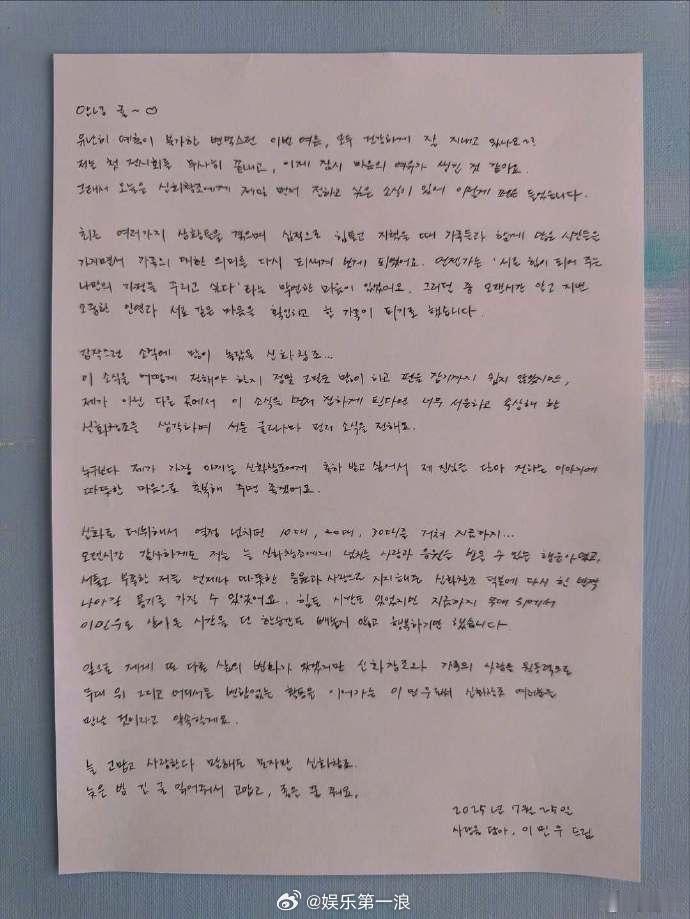 안녕 귤~♡
유난히 예측이 불가한 변덕스런 이번 여름, 모두 건강하게 잘 지내고 있나요~?
저는 첫 전시회를 무사히 끝내고, 이제 잠시 마음의 여유가 생긴 것 같아요.
그래서 오늘은 신화창조에게 제일 먼저 전하고 싶은 소식이 있어 이렇게 펜을 들었습니다.
최근 여러가지 상황들을 겪으며 심적으로 힘들고 지쳤을 때 가족들과 함께 많은 시간들을
가지면서 가족의 대한 의미를 다시 되새겨 보게 되었어요. 언젠가는 '서로 힘이 되어 주는
나만의 가정을 꾸리고 싶다'라는 막연한 마음이 있었어요. 그러던 중 오랜시간 알고 지낸
소중한 인연과 서로 같은 마음을 확인하고 한 가족이 되기로 했습니다.
갑작스런 소식에 많이 놀랐을 신화창조...
이 소식을 어떻게 전해야 하지 정말 고민도 많이 하고 펜을 잡기까지 쉽지 않았지만,
제가 아닌 다른 곳에서 이 소식을 먼저 접하게 된다면 너무 서운하고 속상해 할
신화창조를 생각하며 서툰 글로나마 먼저 소식을 전해요.
누구보다 제가 가장 아끼는 신화창조에게 축하 받고 싶어서 제 진심을 담아 전하는 이야기에
따뜻한 마음으로 축복해 주면 좋겠어요.
신화로 데뷔해서 열정 넘치던 10대, 20대, 30대를 거쳐 지금까지...
오랜시간 감사하게도 저는 늘 신화창조에게 넘치는 사랑과 응원을 받을 수 있는 행운아였고,
서툴고 부족한 저를 언제나 따뜻한 응원과 사랑으로 지지해준 신화창조 덕분에 다시 한 번 더
나아갈 용기를 가질 수 있었어요. 힘든 시간도 있었지만 지금까지 무대 위에서
이민우로 살아온 시간을 단 한순간도 빼놓지 않고 행복하기만 했습니다.
앞으로 제게 또 다른 삶의 변화가 있겠지만 신화창조와 가족의 사랑을 원동력으로
무대 위 그리고 어디서든 변함없는 활동을 이어가는 이민우로써 신화창조 여러분을
만날 것이라고 약속할게요.
늘 고맙고 사랑한다 말해도 모자란 신화창조.
늦은 밤 긴 글 읽어줘서 고맙고, 좋은 꿈 꿔요.
2025년 7월 25일
사랑을 담아, 이민우 드림
@娱乐第一浪